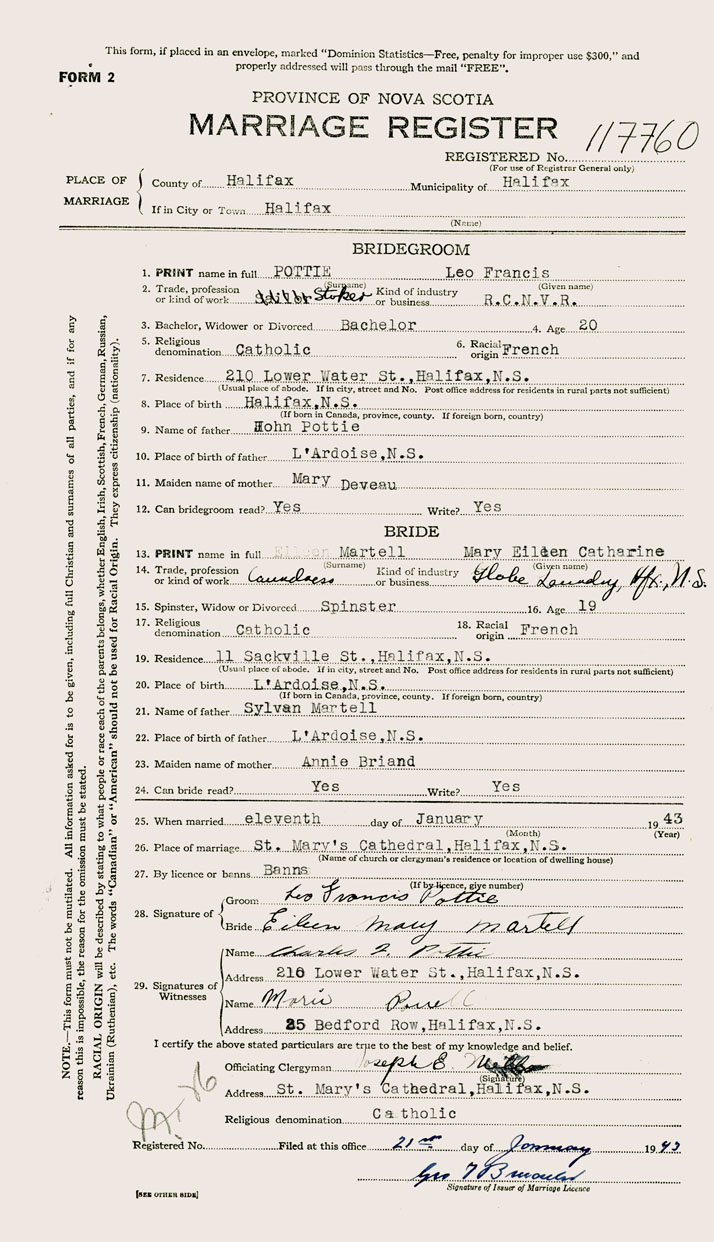 This form, if placed in an envelope, marked "Dominion Statistics—Free, penalty for improper use $300," and
properly addressed will pass through the mail "FREE".
FORM 2
PROVINCE OF NOVA SCOTIA
MARRIAGE REGISTER
117760
REGISTERED No.
(For use of Registrar General only)
PLACE OF MARRIAGE
County of Halifax Municipality of Halifax
If in City or Town Halifax
(Name)
BRIDEGROOM
1. PRINT name in full POTTIE Leo Francis
(Surname) (Given name)
2. Trade, profession or kind of work Stoker Kind of industry or business R.C.N.V.R.
3. Bachelor, Widower or Divorced Bachelor 4. Age 20
5. Religious denomination Catholic 6. Racial origin French
7. Residence 210 Lower Water St.,Halifax,N.S.
(Usual place of abode. If in city, street and No. Post office address for residents in rural parts not sufficient)
8. Place of birth Halifax,N.S.
(If born in Canada, province, county. If foreign born, country)
9. Name of father Hohn Pottie
10. Place of birth of father L'Ardoise,N.S.
11. Maiden name of mother Mary Deveau
12. Can bridegroom read? Yes Write? Yes
BRIDE
13. PRINT name in full Eileen Martell Mary Eileen Catharine
(Surname) (Given name)
14. Trade, profession or kind of work Laundress Kind of industry or business Globe Laundry, Hfx., N.S.
15. Spinster, Widow or Divorced Spinster 16. Age 19
17. Religious denomination Catholic 18. Racial origin French
19. Residence 11 Sackville St.,Halifax,N.S.
(Usual place of abode. If in city, street and No. Post office address for residents in rural parts not sufficient)
20. Place of birth L'Ardoise,N.S.
(If born in Canada, province, county. If foreign born, country)
21. Name of father Sylvan Martell
22. Place of birth of father L'Ardoise,N.S.
23. Maiden name of mother Annie Briand
24. Can bride read? Yes Write? Yes
25. When married eleventh day of January 19 43
(Month) (Year)
26. Place of marriage St. Mary's Cathedral,Halifax,N.S.
(Name of church or clergyman's residence or location of dwelling house)
27. By licence or banns Banns
(If by licence, give number)
28. Signature of
Groom Leo Francis Pottie
Bride Eileen Mary Martell
29. Signatures of Witnesses
Name Charles F. Pottie
Address 210 Lower Water St.,Halifax,N.S.
Name Marie
Address 25 Bedford Row,Halifax,N.S.
I certify the above stated particulars are true to the best of my knowledge and belief.
Officiating Clergyman Joseph E.
(Signature)
Address St. Mary's Cathedral,Halifax,N.S.
Religious denomination Catholic
Registered No. Filed at this office 21 day of January 19 43
Signature of Issuer of Marriage Licence
[SEE OTHER SIDE]
NOTE.—This form must not be mutilated. All information asked for is to be given, including full Christian and surnames of all parties, and if for any
reason this is impossible, the reason for the omission must be stated.
RACIAL ORIGIN will be described by stating to what people or race each of the parents belongs, whether English, Irish, Scottish, French, German, Russian,
Ukrainian (Ruthenian), etc. The words "Canadian" or "American" should not be used for Racial Origin. They express citizenship (nationality).